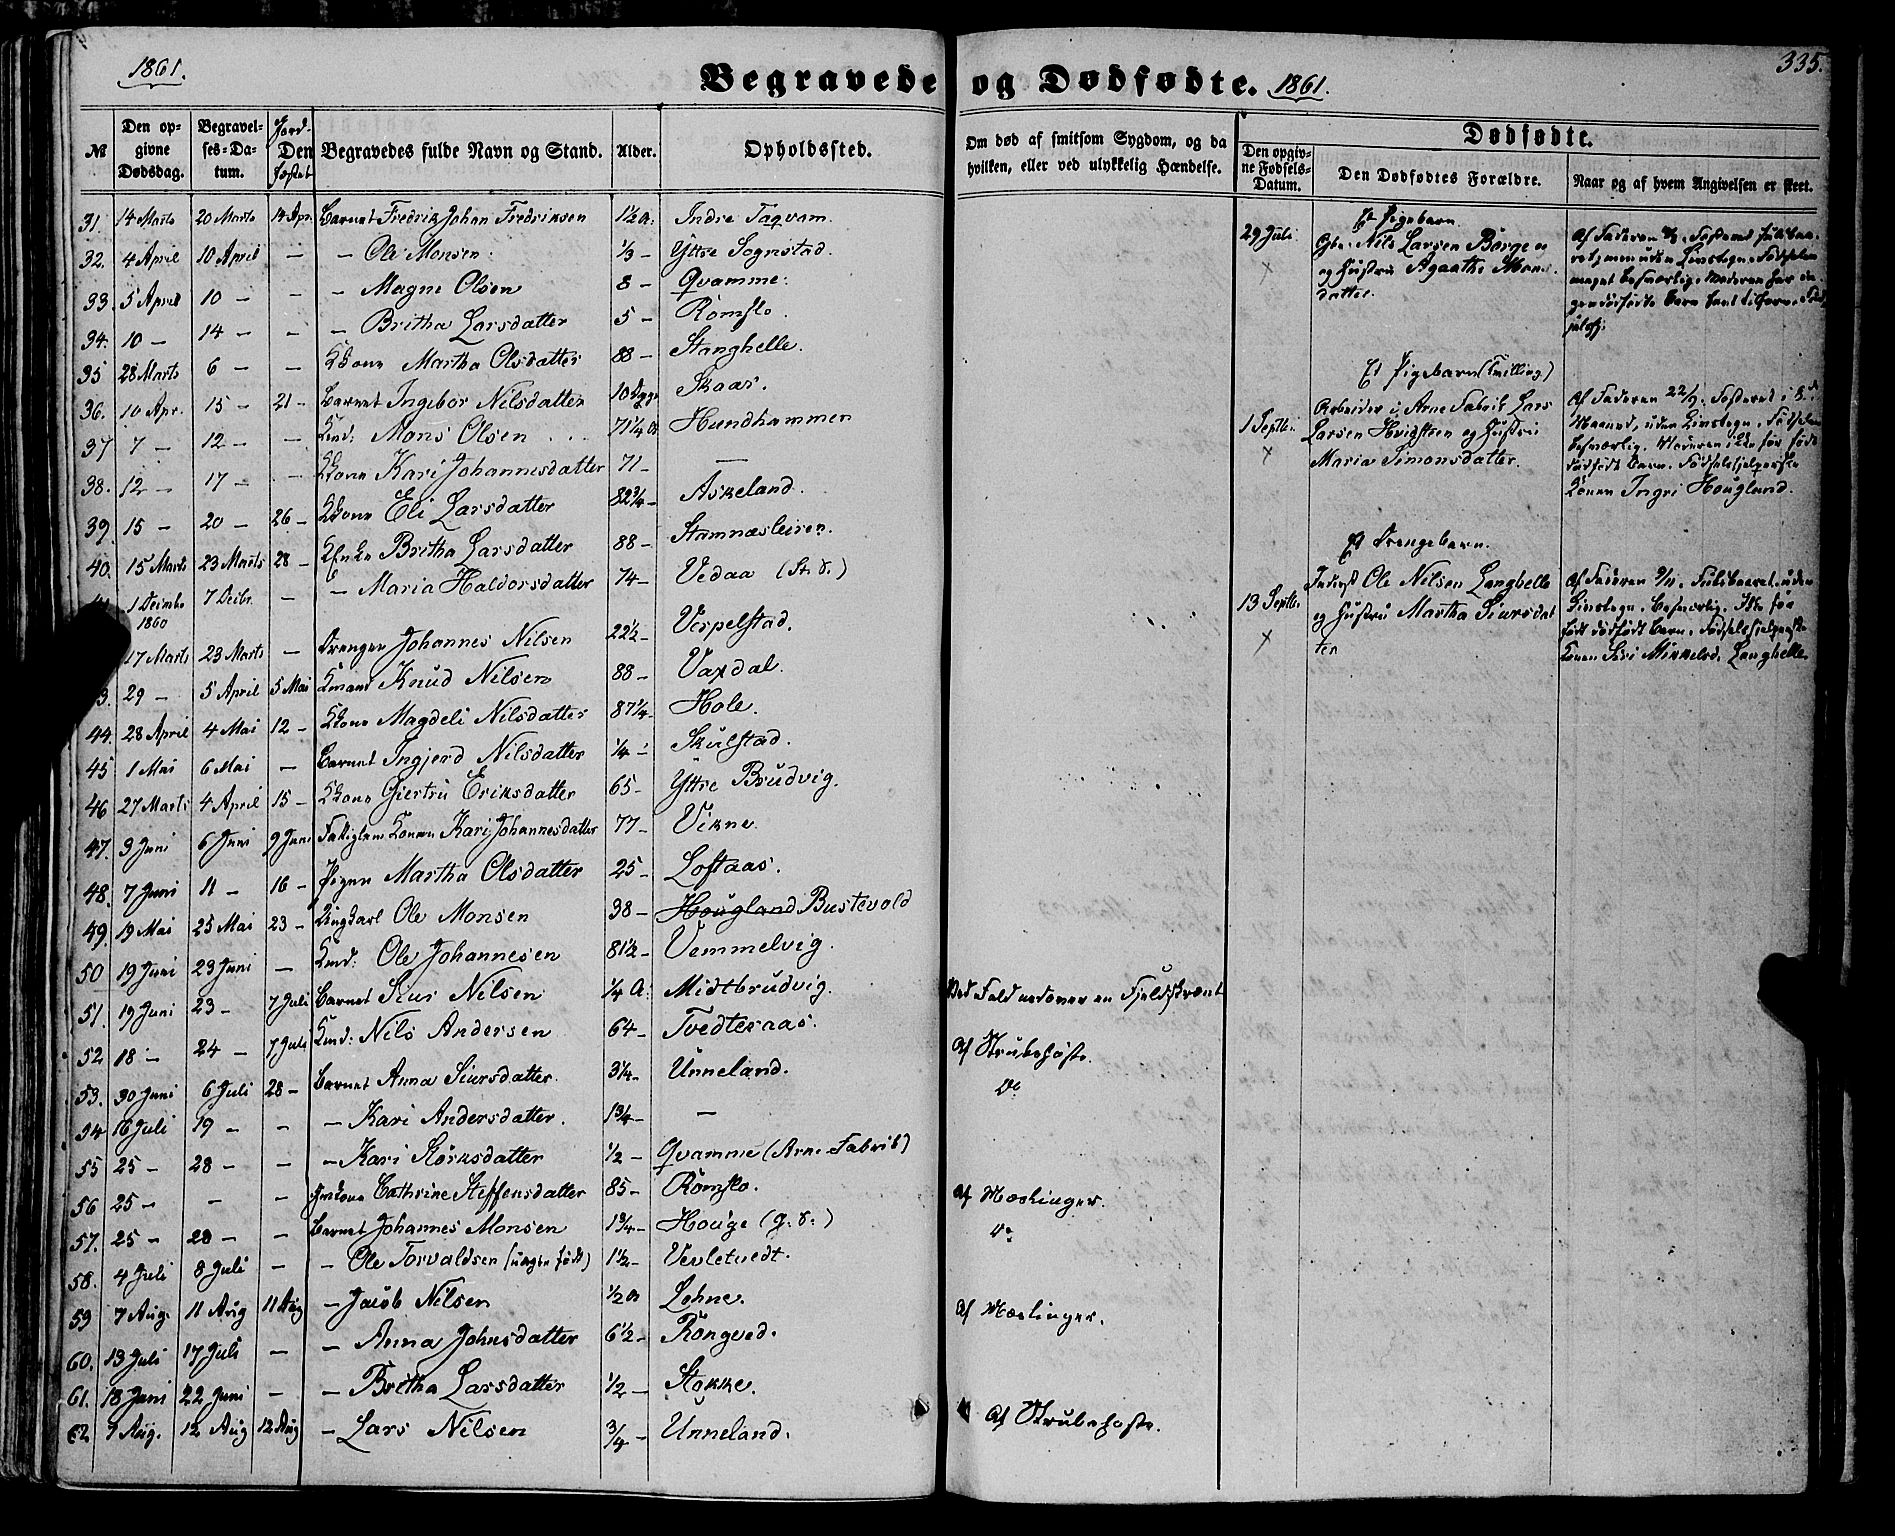 1861.
Begravede og Dødfødte. 1861.
335.
№
Den opgivne Dødsdag.
Begravelses-Datum.
Jord-
Den
fæstet
Begravedes fulde Navn og Stand.
Alder.
Opholdssted.
Om død af smitsom Sygdom, og da hvilken, eller ved ulykkelig Hændelse.
Dødfødte.
Den opgivne Fødsels-Datum.
Den Dødfødtes Forældre.
Naar og af hvem Angivelsen er skeet.
31. 14 Marts 20 Marts 14 Apr. Barnet Fredrik Johan Fredriksen 1½ a. Indre Taqvam.
32. 4 April 10 April — — — Ole Monsen. ⅓ — Yttre Sognstad.
33. 5 April 10 — — — Magne Olsen 8 — Qvamme.
34. 10 — 14 — — — Britha Larsdatter 5 — Romslo.
35 28 Marts 6 — — Kkone Martha Olsdatter 88 — Stanghelle.
36. 10 Apr. 15 — 21 — Barnet Ingebor Nilsdatter 10 Dage Skaar.
37 7 — 12 — — Kmd: Mons Olsen 71¼ a Hundhammer
38. 12 — 17 — — Kkone Kari Johannesdatter 71 — —
39. 15 — 20 — 26 — Kkone Eli Larsdatter 82¾ — Askeland.
40. 15 Marts 23 Marts 28 — Enke Britha Larsdatter 88 — Stamnæsleiren.
1 Decmbr 1860 7 Decbr. — — Maria Haldorsdatter 74 — Vedaa (St. S.)
17 Marts 23 Marts — Drengen Johannes Nilsen 22½ — Vespelstad.
3. 29 — 5 April 5 Mai Kmand Knud Nilsen 88 — Vaxdal.
44. 28 April 4 Mai 12 — Kkone Magdeli Nilsdatter 87¼ — Hole.
45 1 Mai 6 Mai — Barnet Ingjerd Nilsdatter ¼ — Skulstad.
46 27 Marts 4 April 15 — Kkone Giertru Eriksdatter 65 — Yttre Brudvig.
47. 3 Juni 6 Juni 9 Juni Fattiglem Konen Kari Johannesdatter 77 — Vikne
48. 7 Juni 11 — 16 — Pigen Martha Olsdatter 25 — Loftaas.
49. 19 Mai 25 Mai 23 — Ungkarl Ole Monsen 38 — Hougland Bustevold
50 19 Juni 23 Juni — Kmd: Ole Johannesen 81½ — Vemmelvig.
51. 19 Juni 23 — 7 Juli Barnet Siur Nilsen ¼ A. Midtbrudvig.
52 18 — 24 — 7 Juli Kmd: Nils Andersen 64 — Tvedteraas. Ved Fald nedover en Fjeldskrænt
53. 30 Juni 6 Juli 28 — Barnet Anna Siursdatter 3¼ — Unneland. Af Strubehoste.
54 16 Juli 19 — — — Kari Andersdatter. 1¾ — — Do
55 25 — 28 — — — Kari Størksdatter ½ — Qvamme (Arne Fabrik)
56 25 — — — Cathrine Steffensdatter 85 — Romslo.
57. 25 — 28 — — Barnet Johannes Monsen 1¾ — Houge (G. S.) Af Mæslinger.
58. 4 Juli 8 Juli — — Ole Torvaldsen (uægte født) 1½ — Vevletvedt. Do
59 7 Aug. 11 Aug 11 Aug — Jacob Nilsen ½ a Lohne.
60. 13 Juli 17 Juli — — Anna Johnsdatter 6½ — Rongved. Af Mæslinger.
61. 18 Juni 22 Juni — — Britha Larsdatter ½ — Stokke.
62 9 Aug. 12 Aug 12 Aug — Lars Nilsen ¾ — Unneland. Af Strubehoste.
Et Pigebarn
29 Juli Gbr. Nils Larsen Borge og
og Hustru Agaathe Mons
datter.
Af Faderen Fosteret fuldbaa-
ret, men uden Livstegn. Fødselen
meget besværlig. Moderen har in
gen dødfødte Børn havt tilforn.
Et Pigebarn (Tvilling)
1 Septbr. Arbeider i Arne Fabrik Lars
Larsen Hvidsteen og Hustru
Maria Simonsdatter.
Af Faderen 22/9. Fosteret i 8de
Maaned, uden Livstegn. Fødselen
besværlig. Moderen ikke før født
dødfødt Barn. Fødselshjelperske
Konen Ingri Hougland.
Et Drengebarn.
13 Septbr. Inderst Ole Nilsen Langhelle
og Hustru Martha Siursdat
ter
Af Faderen 9/11. Fuldbaaret, uden
Livstegn. Besværlig. Ikke før
født dødfødt Barn. Fødselshjelperske
Konen Siri Mikkelsd. Langhelle